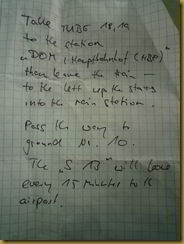 Take TUBE 18, 19
to the station
„DOM / Hauptbahnhof (HBF)"
then leave the train –
to the left up the stairs
into the main station.
Pass the way to
ground Nr. 10.
The „S 13" will leave
every 15 minutes to the
airport.